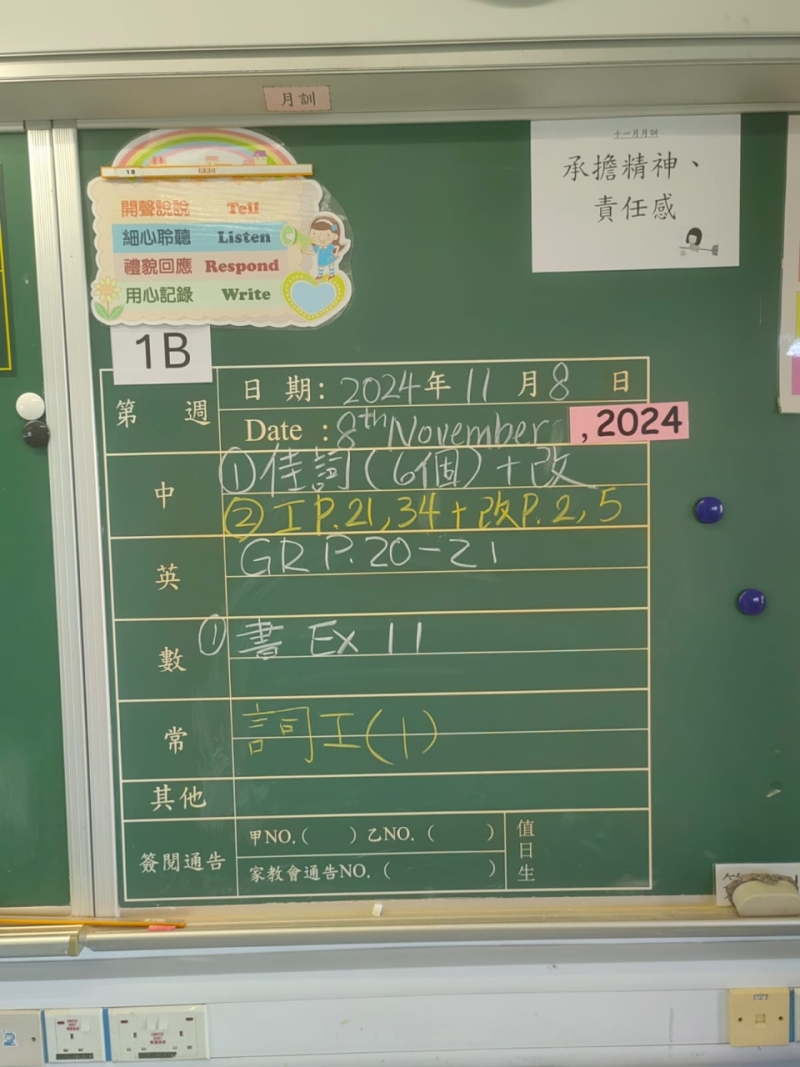 月訓
十一月月訓
承擔精神、
責任感
1B
開聲說說 Tell
細心聆聽 Listen
禮貌回應 Respond
用心記錄 Write
1B
第 週
日 期: 2024年 11 月 8 日
Date : 8th November , 2024
中
①佳詞(6個)+改
②工P.21,34+改P.2,5
英
GR P.20-21
數
①書 Ex 11
常
詞工(1)
其他
簽閱通告
甲NO.( ) 乙NO. ( )
家教會通告NO. ( )
值日生